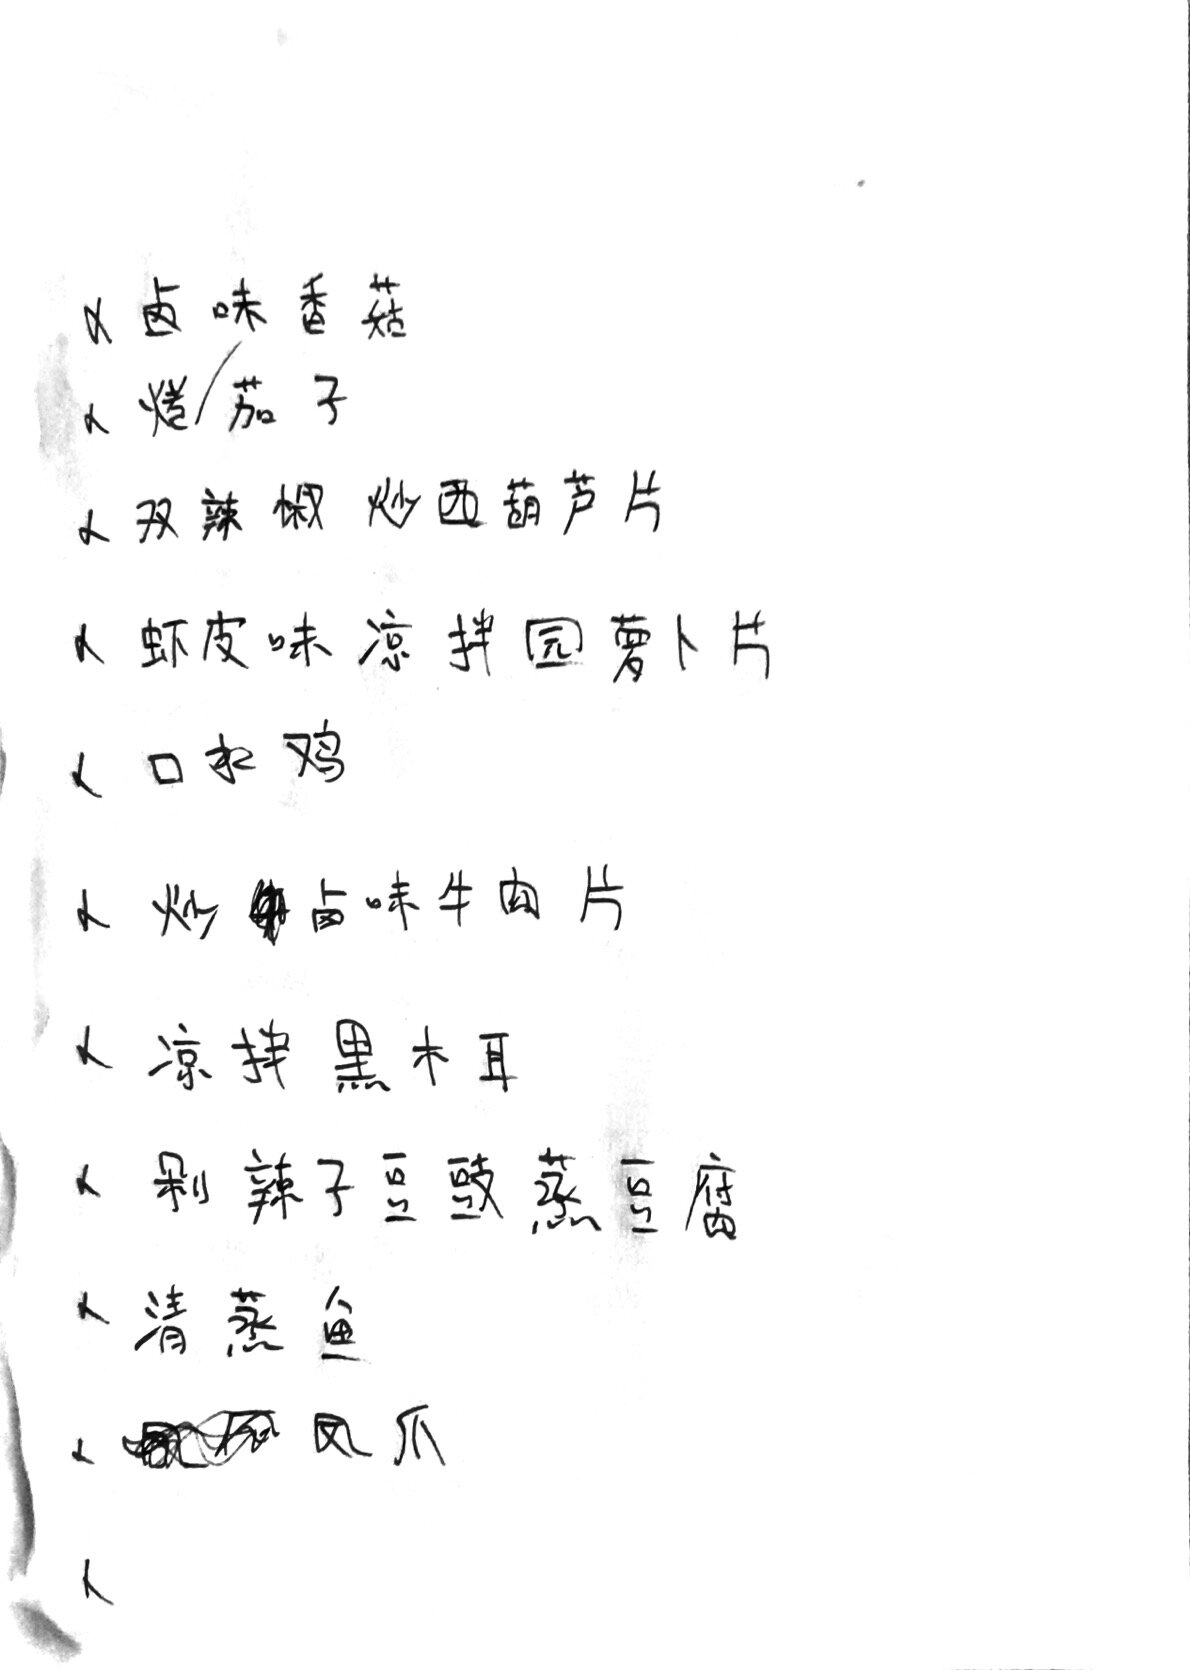 卤味香菇
烤茄子
双辣椒炒西葫芦片
虾皮味凉拌园萝卜片
口水鸡
炒卤味牛肉片
凉拌黑木耳
剁辣子豆豉蒸豆腐
清蒸鱼
凤爪